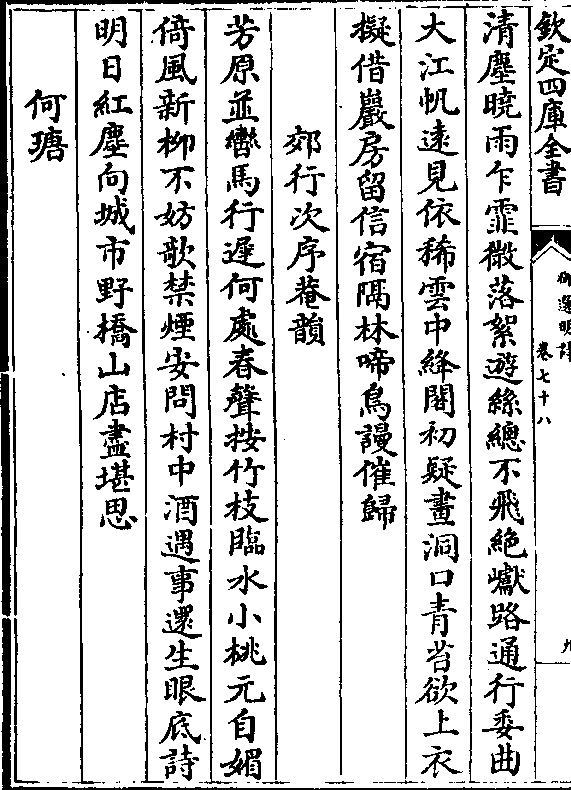 欽定四庫全書
卷七十八
清塵曉雨乍霏微落絮遊絲總不飛絶巘路通行委曲
大江帆遠見依稀雲中絳闕初疑畫洞口青苔欲上衣
擬借巖房留信宿隔林啼鳥謾催歸
郊行次序菴韻
芳原並轡馬行遲何處春聲按竹枝臨水小桃元自媚
倚風新柳不妨欹禁煙安問村中酒遇事還生眼底詩
明日紅塵向城市野橋山店盡堪思
何瑭